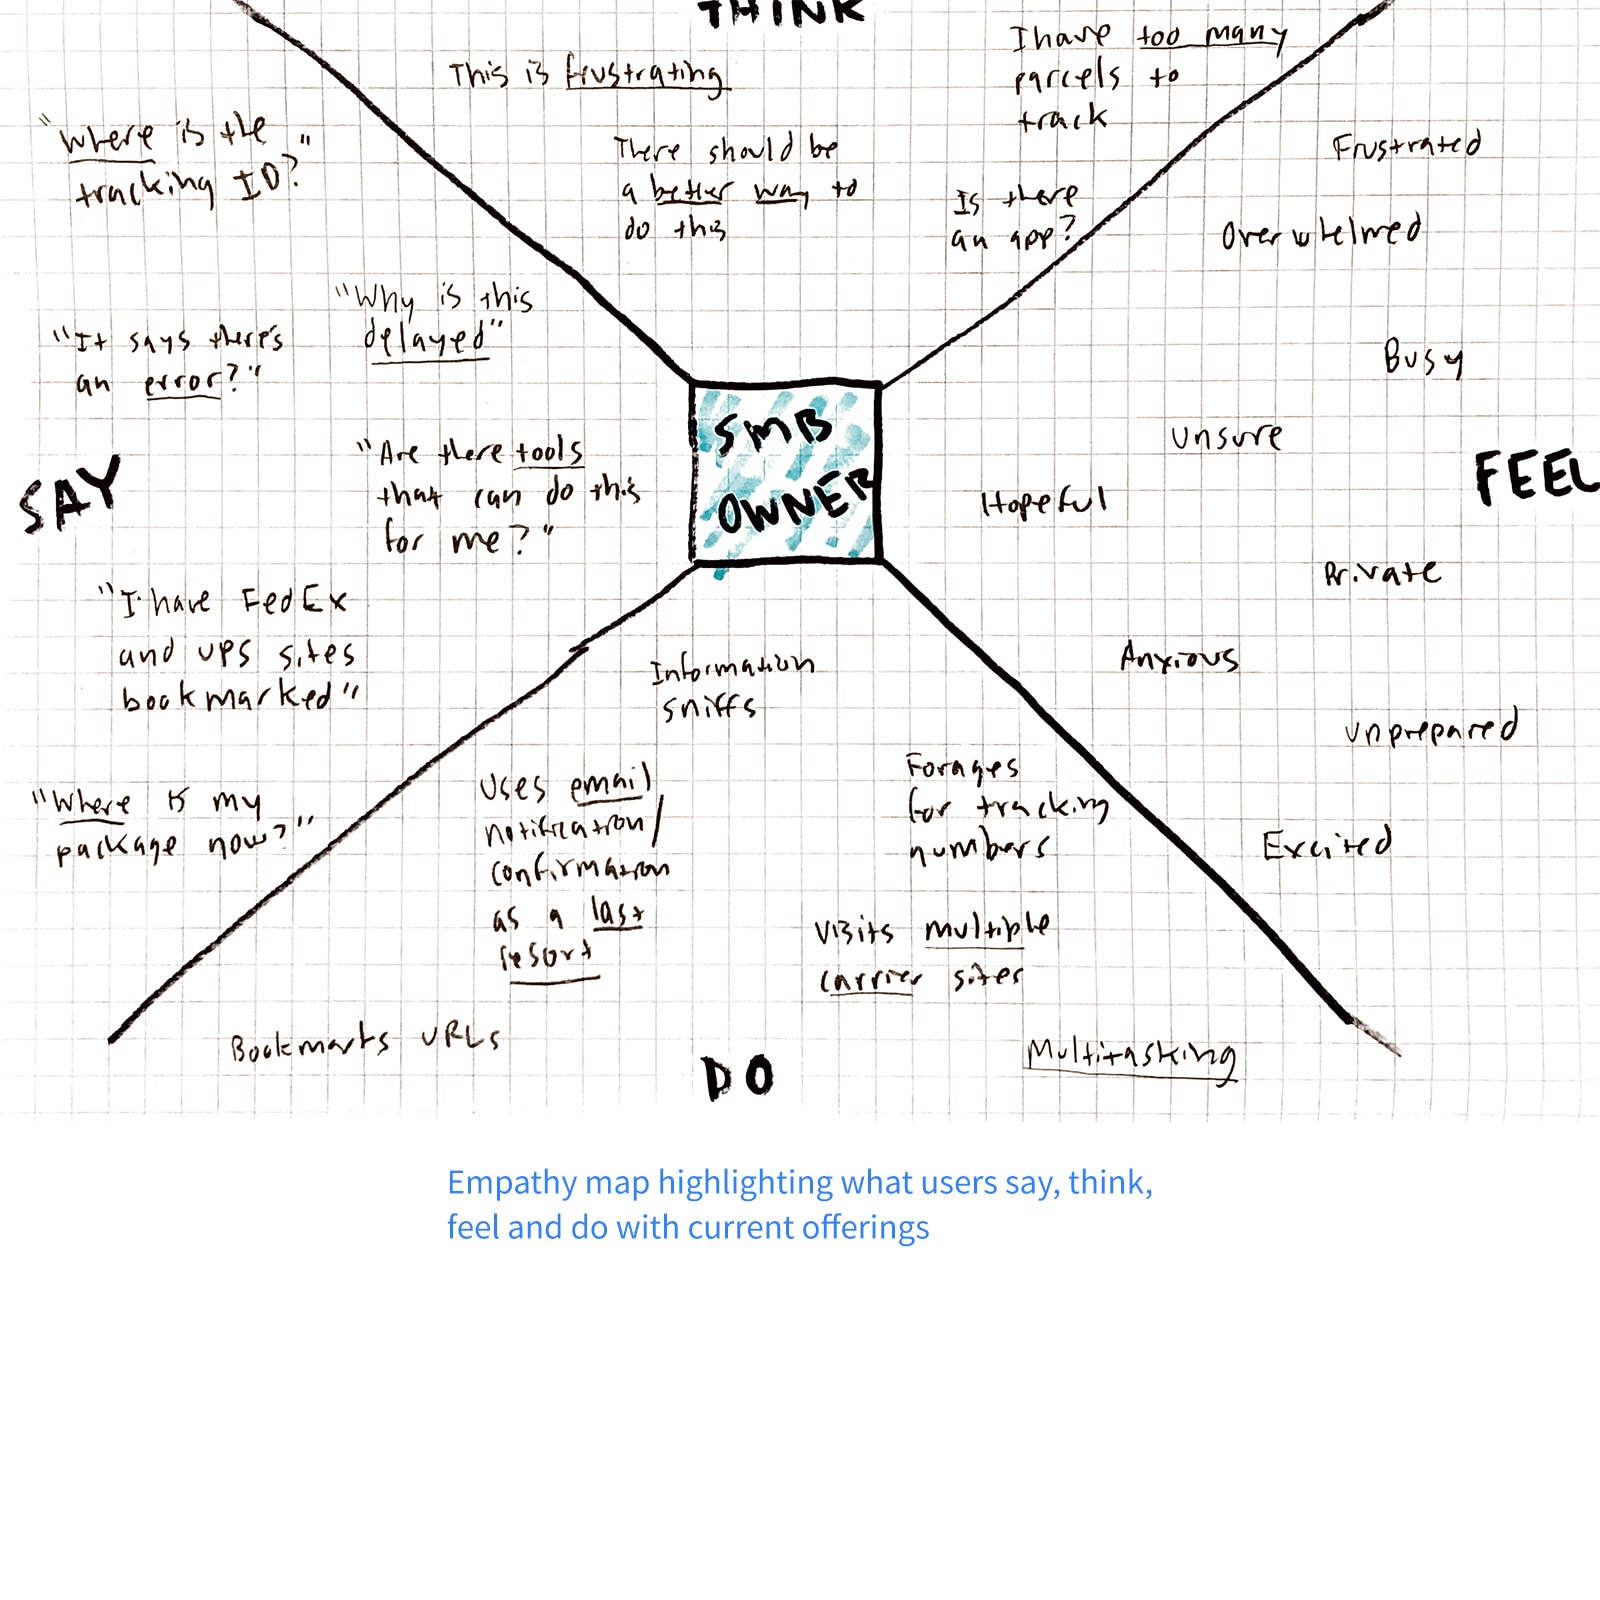 THINK
This is frustrating
I have too many
parcels to
track
There should be
a better way to
do this
Is there
an app?
"Where is the
tracking ID?"
"Why is this
delayed"
"It says there's
an error?"
SAY
"Are there tools
that can do this
for me?"
"I have FedEx
and UPS sites
bookmarked"
"Where is my
package now?"
SMB
OWNER
Frustrated
Overwhelmed
Busy
Unsure
FEEL
Hopeful
Private
Anxious
Unprepared
Excited
Information
sniffs
Uses email
notification/
confirmation
as a last
resort
Forages
for tracking
numbers
Visits multiple
carrier sites
Bookmarks URLs
DO
Multitasking
Empathy map highlighting what users say, think,
feel and do with current offerings